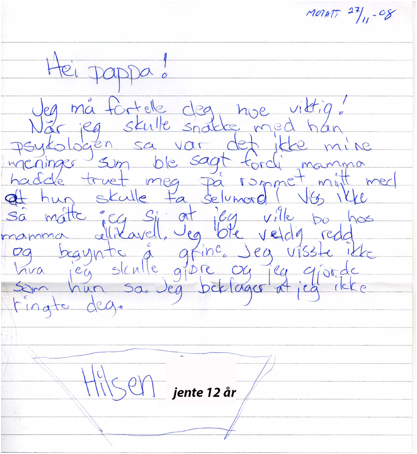 MOTATT 27/11-08
Hei pappa!
Jeg må fortelle deg noe viktig!
Når jeg skulle snakke med han
psykologen sa var det ikke mine
meninger som ble sagt fordi mamma
hadde truet meg på rommet mitt med
at hun skulle ta selvmord! Vis ikke
så måtte jeg si at jeg ville bo hos
mamma allikavell. Jeg ble veldig redd
og begynte å grine. Jeg visste ikke
hva jeg skulle gjøre og jeg gjorde
som hun sa. Jeg beklager at jeg ikke
ringte deg.
Hilsen jente 12 år